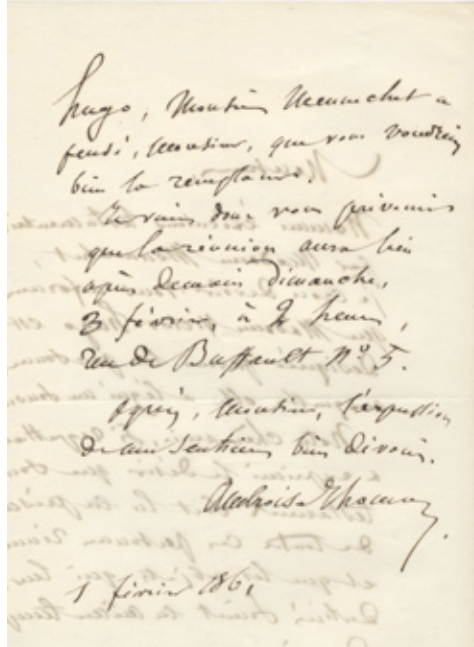 Hugo, Monsieur Mennechet a
pensé, Monsieur, que vous voudriez
bien la remplacer.
Je viens donc vous prévenir
que la réunion aura lieu
après demain dimanche,
3 février, à 2 heures,
rue de Buffault N° 5.
Agréez, Monsieur, l'expression
de mes sentimens bien dévoués.
Ambroise Thomas
1 février 1861